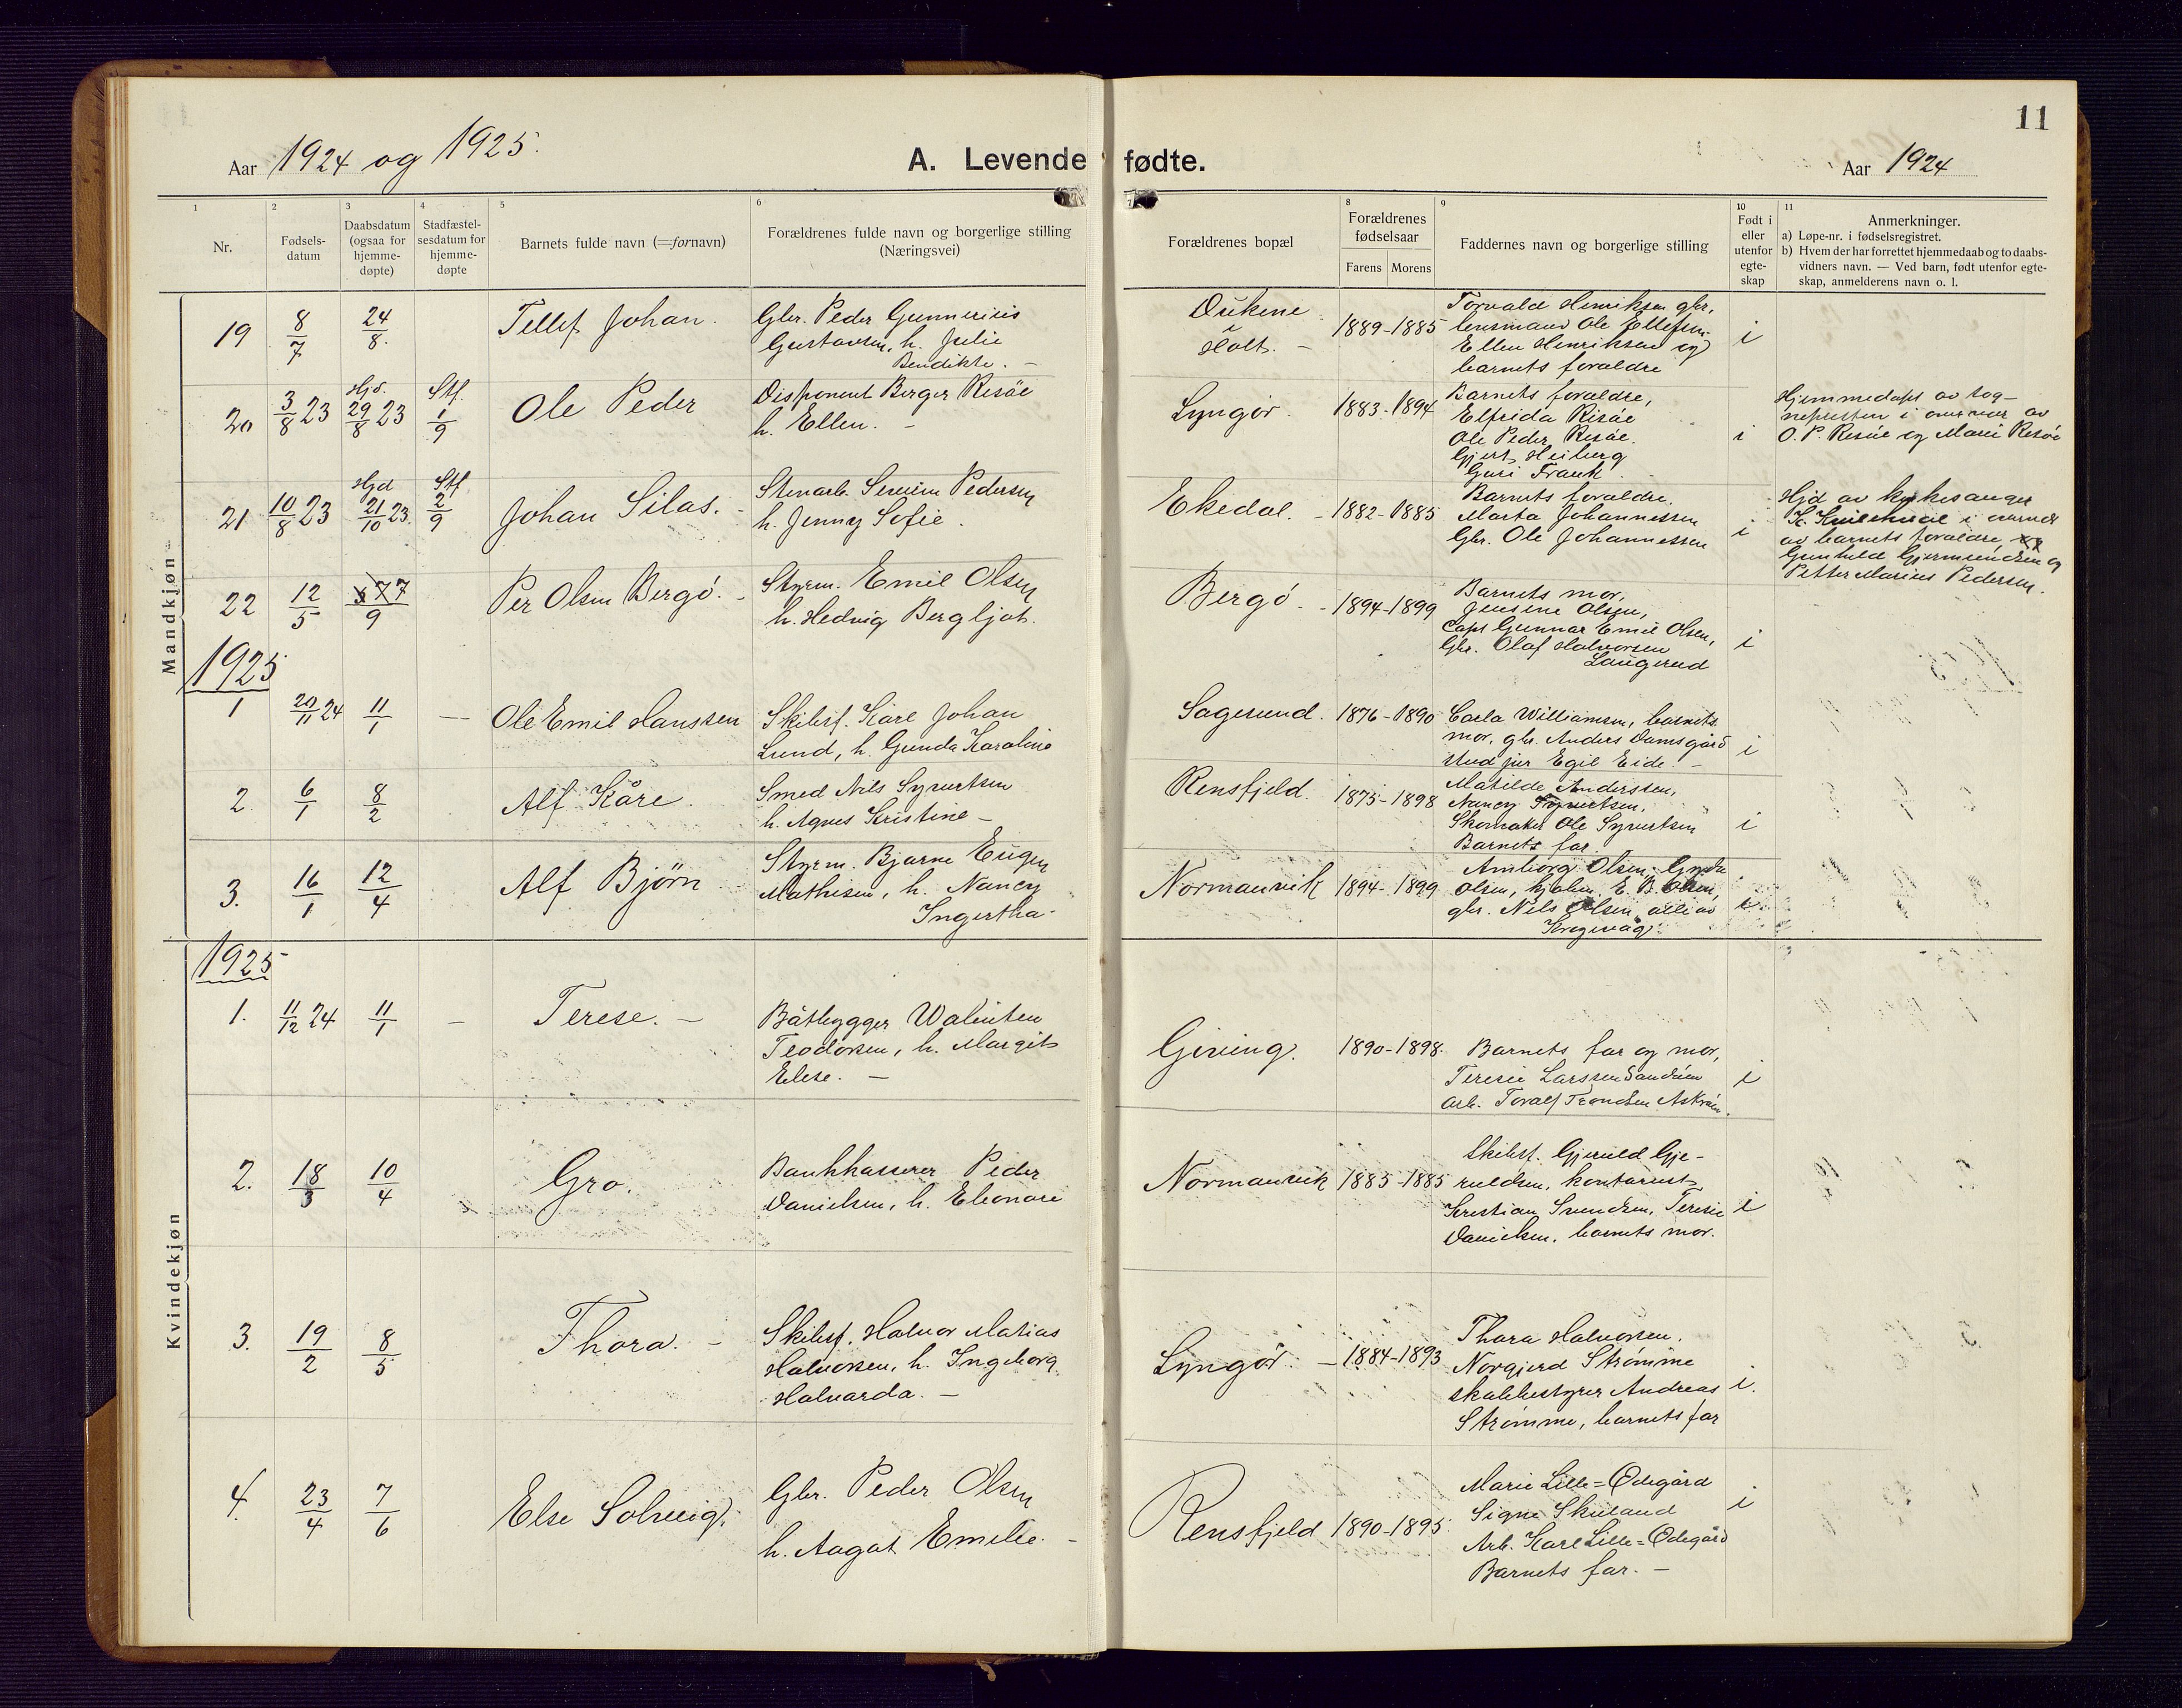 11
Aar 1924 og 1925.
A. Levende fødte.
Aar 1924
1
Nr.
2
Fødsels-
datum
3
Daabsdatum
(ogsaa for
hjemme-
døpte)
4
Stadfæstel-
sesdatum for
hjemme-
døpte
5
Barnets fulde navn (=fornavn)
6
Forældrenes fulde navn og borgerlige stilling
(Næringsvei)
Forældrenes bopæl
8
Forældrenes
fødselsaar
Farens Morens
9
Faddernes navn og borgerlige stilling
10
Født i
eller
utenfor
egte-
skap
11
Anmerkninger.
a) Løpe-nr. i fødselsregistret.
b) Hvem der har forrettet hjemmedaab og to daabs-
vidners navn. — Ved barn, født utenfor egte-
skap, anmelderens navn o. l.
Mandkjøn
19
8/7
24/8.
Tellef Johan.
Gbr. Peder Gunnerius
Gustavsen, h. Julie
Bendikte. -
Holt. -
1889-1885
Torvald Henriksen gbr,
lensmand Ole Ellefsen.
Ellen Henriksen og
barnets foraldre
i
20
3/8 23
Hjd. 29/8 23
Stf. 1/9
Ole Peder
Disponent Berger Risöe
h. Ellen. -
Lyngör.
1883-1894
Barnets foraldre,
Elfrida Risöe
Ole Peder Risöe.
Gjert Heiberg
Guri Frank
i
Hjemmedøpt av sog-
nepresten i nærvær av
O. P. Risöe og Marie Risöe
21
10/8 23
Hjd 21/10 23.
Stf 2/9
Johan Silas. -
Stenarb. Pedersen
h. Jenny Sofie.
Ekedal. -
1882-1885
Barnets foraldre.
Marta Johannessen
Gbr. Ole Johannessen
i
Hjd av kirkesanger
K. i nærvær
av barnets foraldre
Gunhild Gjermundsen og
Petter Marius Pedersen.
22
12/5
7/9
Per Olsen Bergö. -
Styrm. Emil Olsen
h. Hedvig Bergljot.
Bergö. -
1894-1899
Barnets mor,
Jensine Olsen,
Capt Gunnar Emil Olsen,
Gbr. Olaf Halvorsen
Laugerud
i
1925
1
20/11 24
11/1
—
Ole Emil Hanssen
Skibsf. Karl Johan
Lund, h. Gunda Karoline
Sagesund.
1876-1890
Carla Williamsen, barnets
mor, gbr. Anders Damsgård
stud jur Egil Eide. -
i
2.
6/1
8/2
Alf Kåre.
Smed Nils Syvertsen
h. Agnes Kristine -
Rensfjeld.
1875-1898
Matilde Anderssen,
Nancy Syvertsen,
Skomaker Ole Syvertsen
Barnets far.
i
3.
16/1
12/4
Alf Björn
Styrm. Bjarne Eugen
Mathisen, h. Nancy
Ingertha -
Normanvik
1894-1899
Amborg Olsen,
Olsen, E. B. Olsen,
gbr. Nils Olsen, alle av
i.
Kvindekjøn
1925
1.
11/12 24
11/1
—
Terese. -
Båtbygger Walenten
Teodorsen, h. Margit
Elese. -
Giving.
1890-1898.
Barnets far og mor,
Teresie Larssen
arb. Toralf Trondsen
i
2.
18/3
10/4
Gro.
Bankkasserer Peder
Danielsen, h. Eleonore
Normanvik
1885-1885
Skibsf. Gjeruld Gje-
ruldsen, kontorist
Kristian Svendsen, Teresie
Danielsen, barnets mor.
i
3.
19/2
8/5
Thora. -
Skibsf. Halvor Matias
Halvorsen, h. Ingeborg
Halvarda. -
Lyngör. -
1884-1893
Thora Halvorsen,
Norgjerd Strømme
skolebestyrer Andreas
Strømme, barnets far
i.
4.
23/4
7/6
Else Solveig.
Gbr. Peder Olsen
h. Aagot Emilie. -
Rensfjeld
1890-1895.
Marie Lille=Ødegård
Signe Skuland
Arb. Karl Lille=Ødegård
Barnets far. -
i